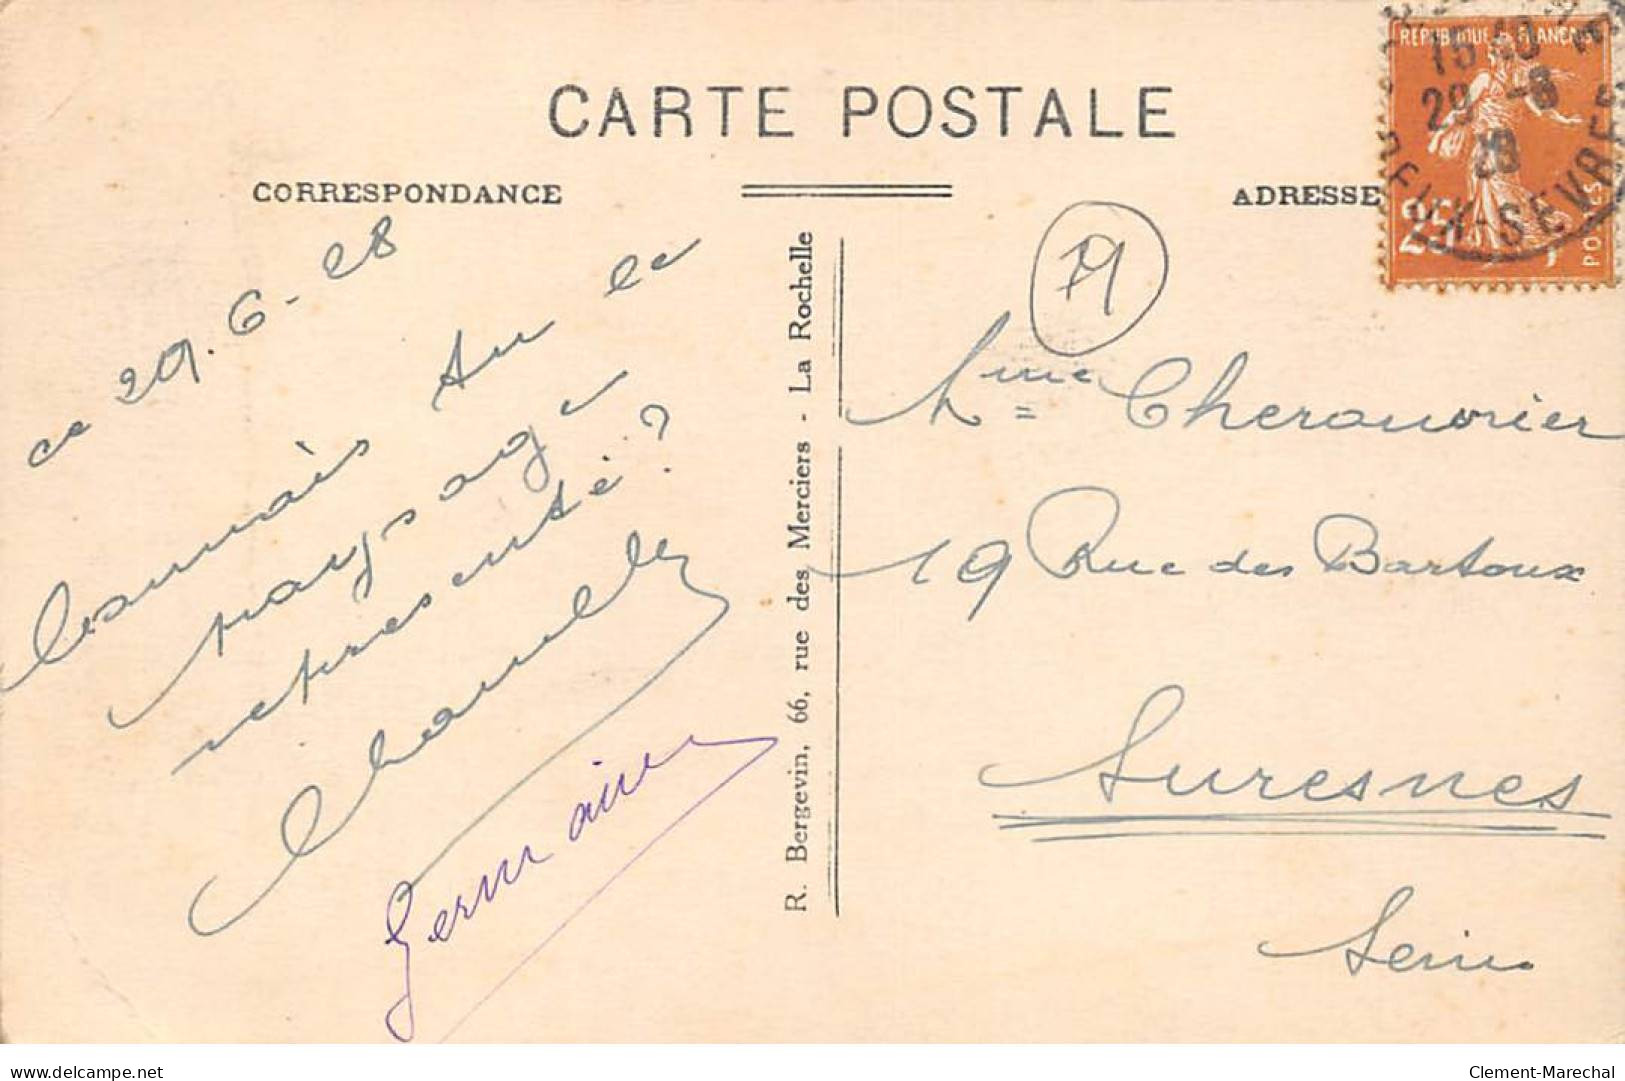 CARTE POSTALE
CORRESPONDANCE
ADRESSE
REPUBLIQUE FRANÇAISE
15 40
29 -6
28
DEUX-SEVRES
25
POSTES
ce 29.6-28
Connais tu le
paysage
représenté ?
Germaine
R. Bergevin, 66, rue des Merciers - La Rochelle
Mme Cherouvrier
19 Rue des Bartoux
Suresnes
Seine
www.delcampe.net
Clement-Marechal